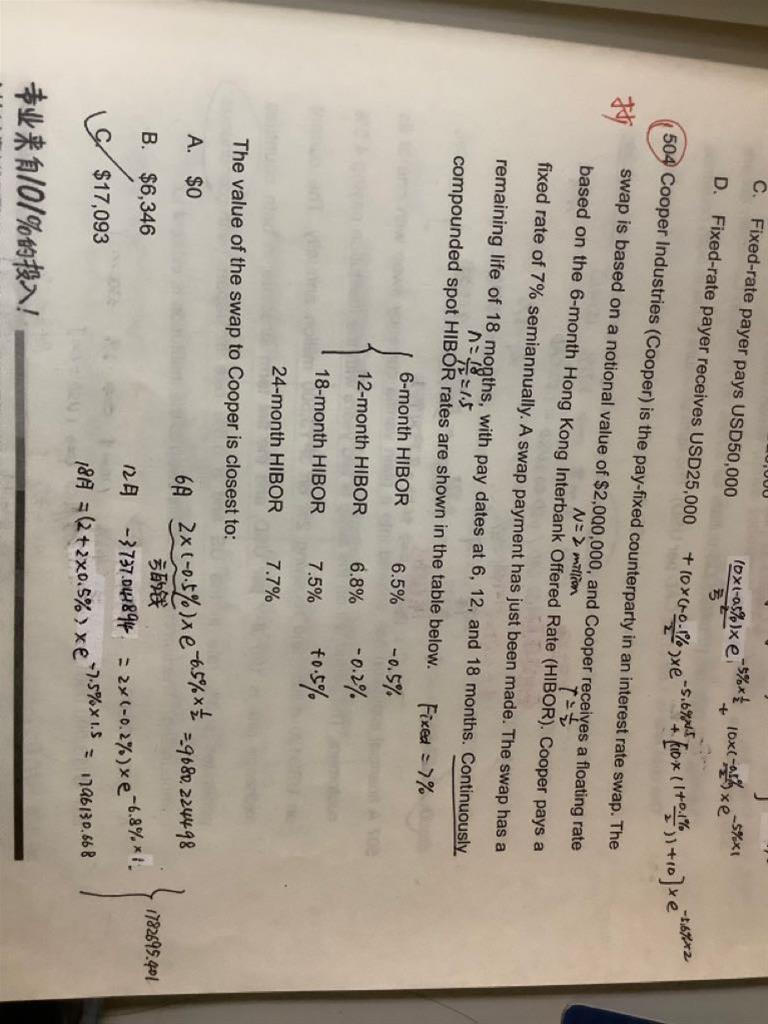 C. Fixed-rate payer pays USD50,000
D. Fixed-rate payer receives USD25,000
504 Cooper Industries (Cooper) is the pay-fixed counterparty in an interest rate swap. The
swap is based on a notional value of $2,000,000, and Cooper receives a floating rate
N = 2 million
r = 1/2
based on the 6-month Hong Kong Interbank Offered Rate (HIBOR). Cooper pays a
fixed rate of 7% semiannually. A swap payment has just been made. The swap has a
remaining life of 18 months, with pay dates at 6, 12, and 18 months. Continuously
n = 18/12 = 1.5
compounded spot HIBOR rates are shown in the table below.
Fixed = 7%
6-month HIBOR 6.5% -0.5%
12-month HIBOR 6.8% -0.2%
18-month HIBOR 7.5% +0.5%
24-month HIBOR 7.7%
The value of the swap to Cooper is closest to:
A. $0
B. $6,346
C. $17,093
6月 2×(-0.5%)×e^-6.5%×1/2 = 9680.224498
12月 -3737.041894 = 2×(-0.2%)×e^-6.8%×1
18月 = (2+2×0.5%)×e^-7.5%×1.5 = 1796130.668
1782695.401
专业来自101%的投入!